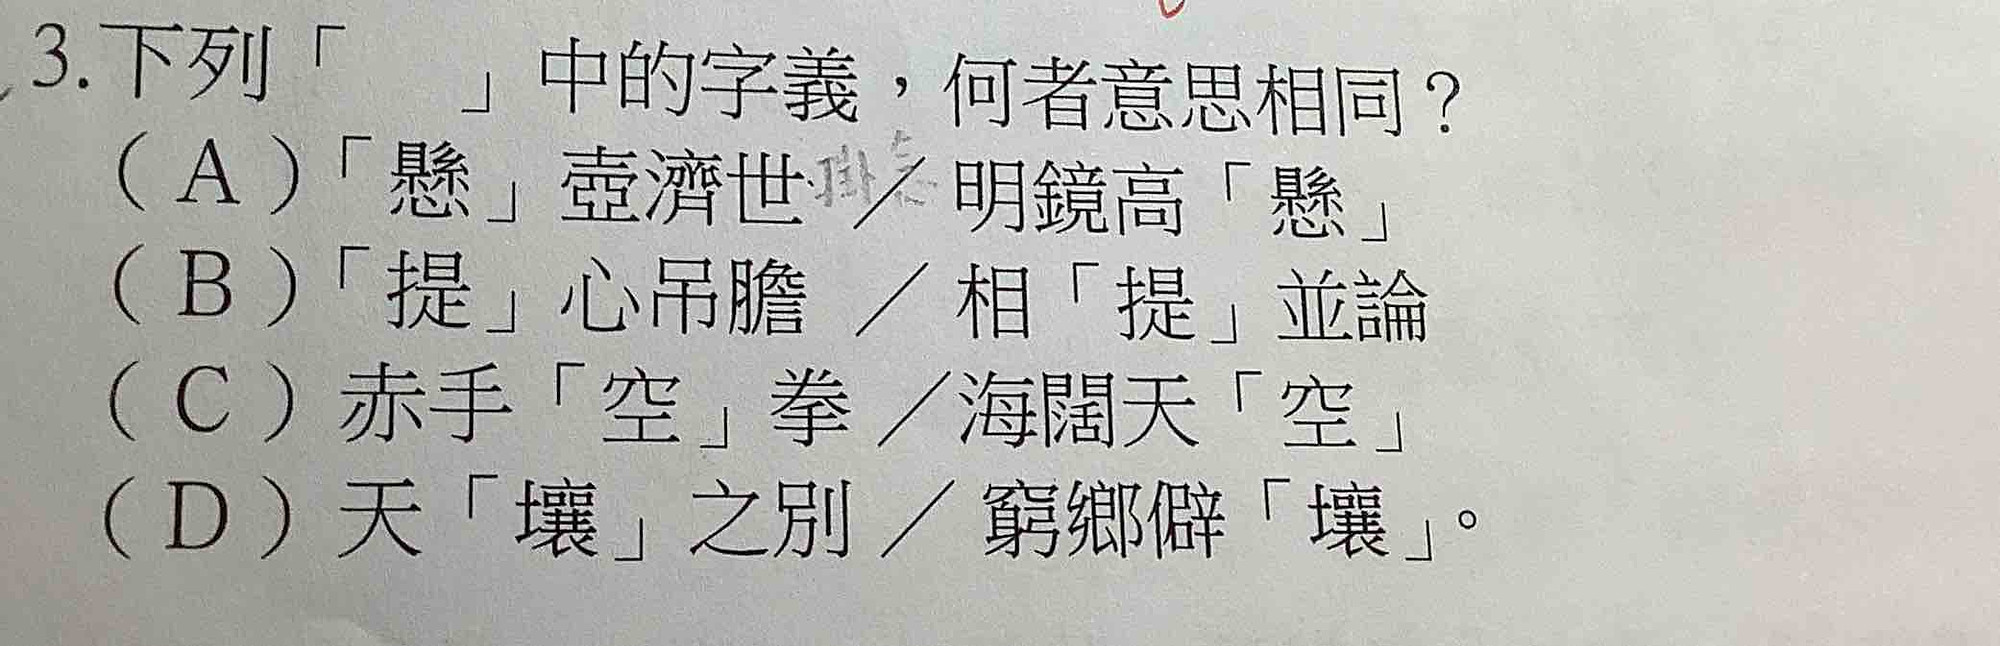 3.下列「　」中的字義，何者意思相同？
（A）「懸」壺濟世 掛念／明鏡高「懸」
（B）「提」心吊膽 ／相「提」並論
（C）赤手「空」拳 ／海闊天「空」
（D）天「壤」之別 ／窮鄉僻「壤」。